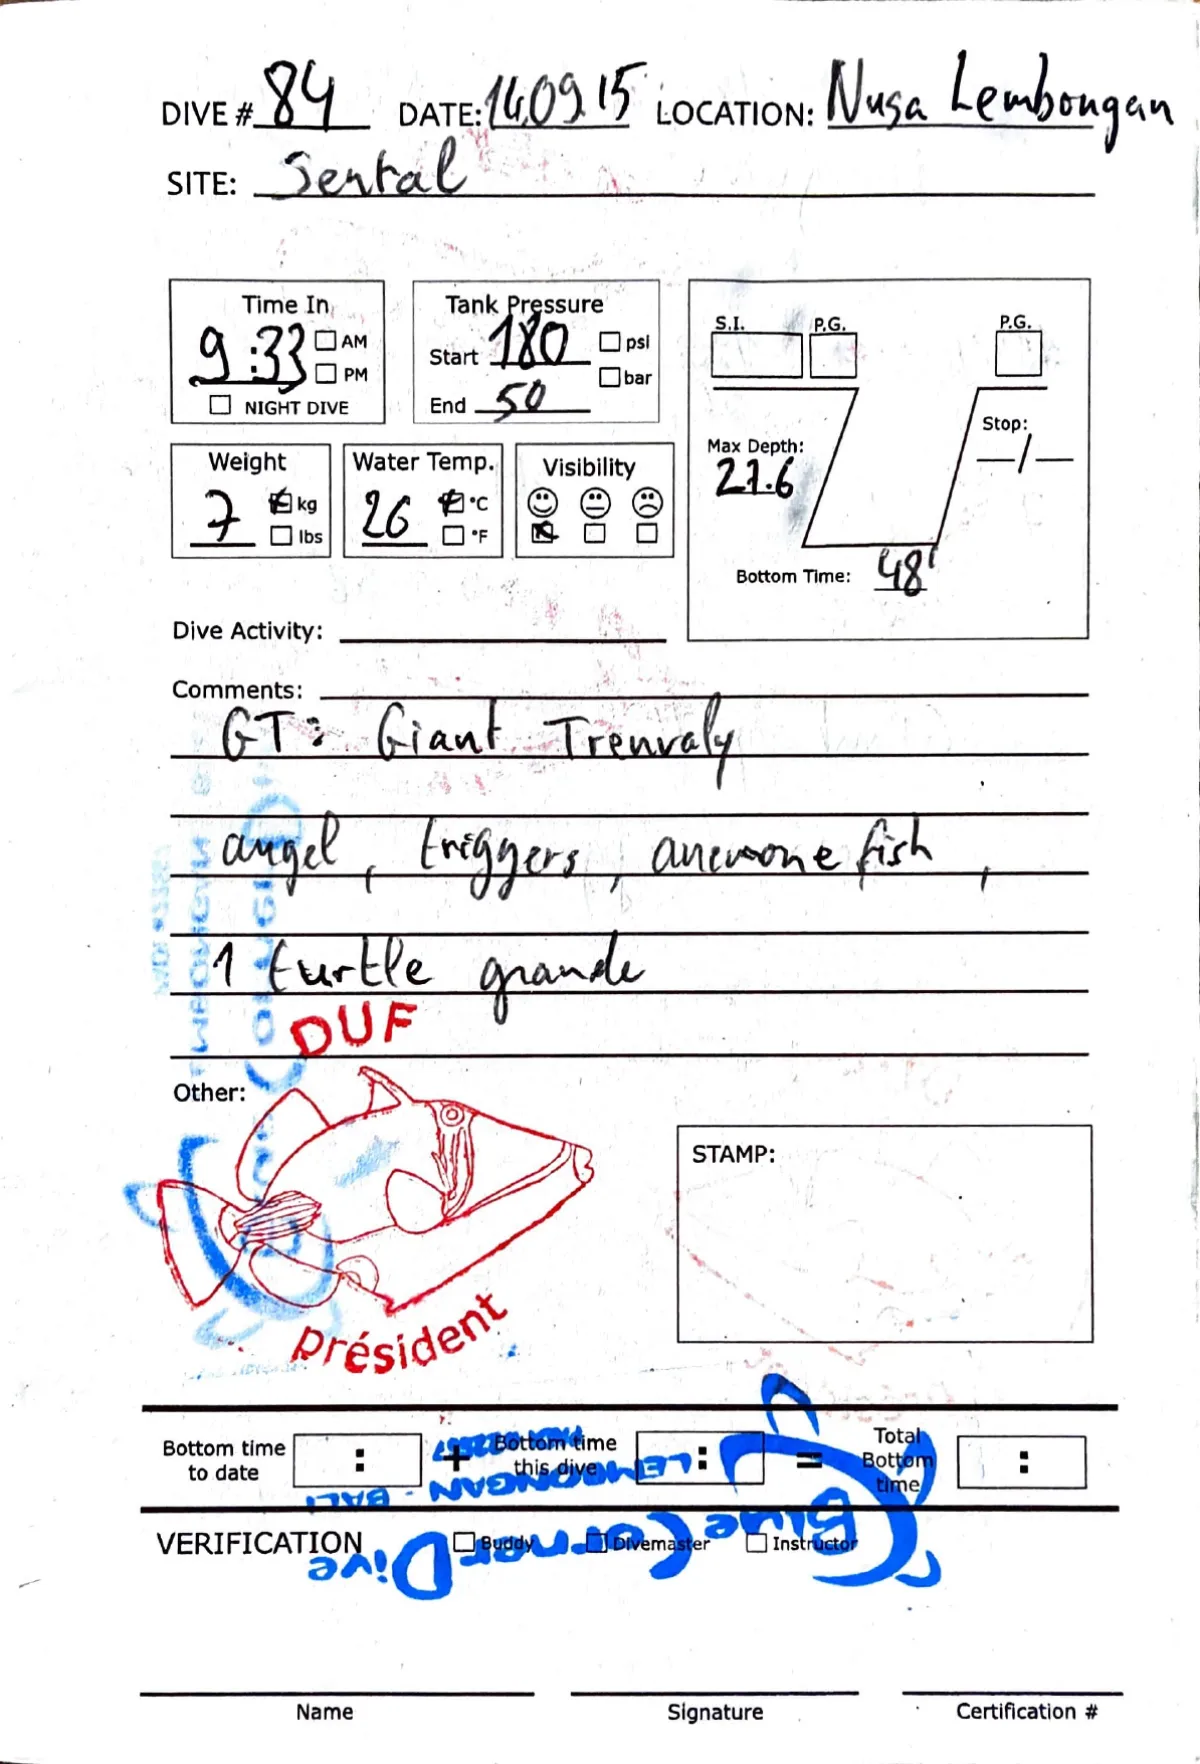 DIVE # 84 DATE: 14.09.15 LOCATION: Nusa Lembongan
SITE: Sental
Time In
9:33 AM
PM
NIGHT DIVE
Tank Pressure
Start 180 psi
bar
End 50
S.I. P.G. P.G.
Stop:
Max Depth:
21.6
Bottom Time: 48'
Weight
7 kg
lbs
Water Temp.
26 °C
°F
Visibility
Dive Activity:
Comments:
GT: Giant Trenvaly
angel, triggers, anemone fish,
1 turtle grande
DUF
Other:
président
STAMP:
Bottom time to date : + Bottom time this dive : = Total Bottom time :
VERIFICATION Buddy Divemaster Instructor
Blue Corner Dive
LEMBONGAN - BALI
Name Signature Certification #